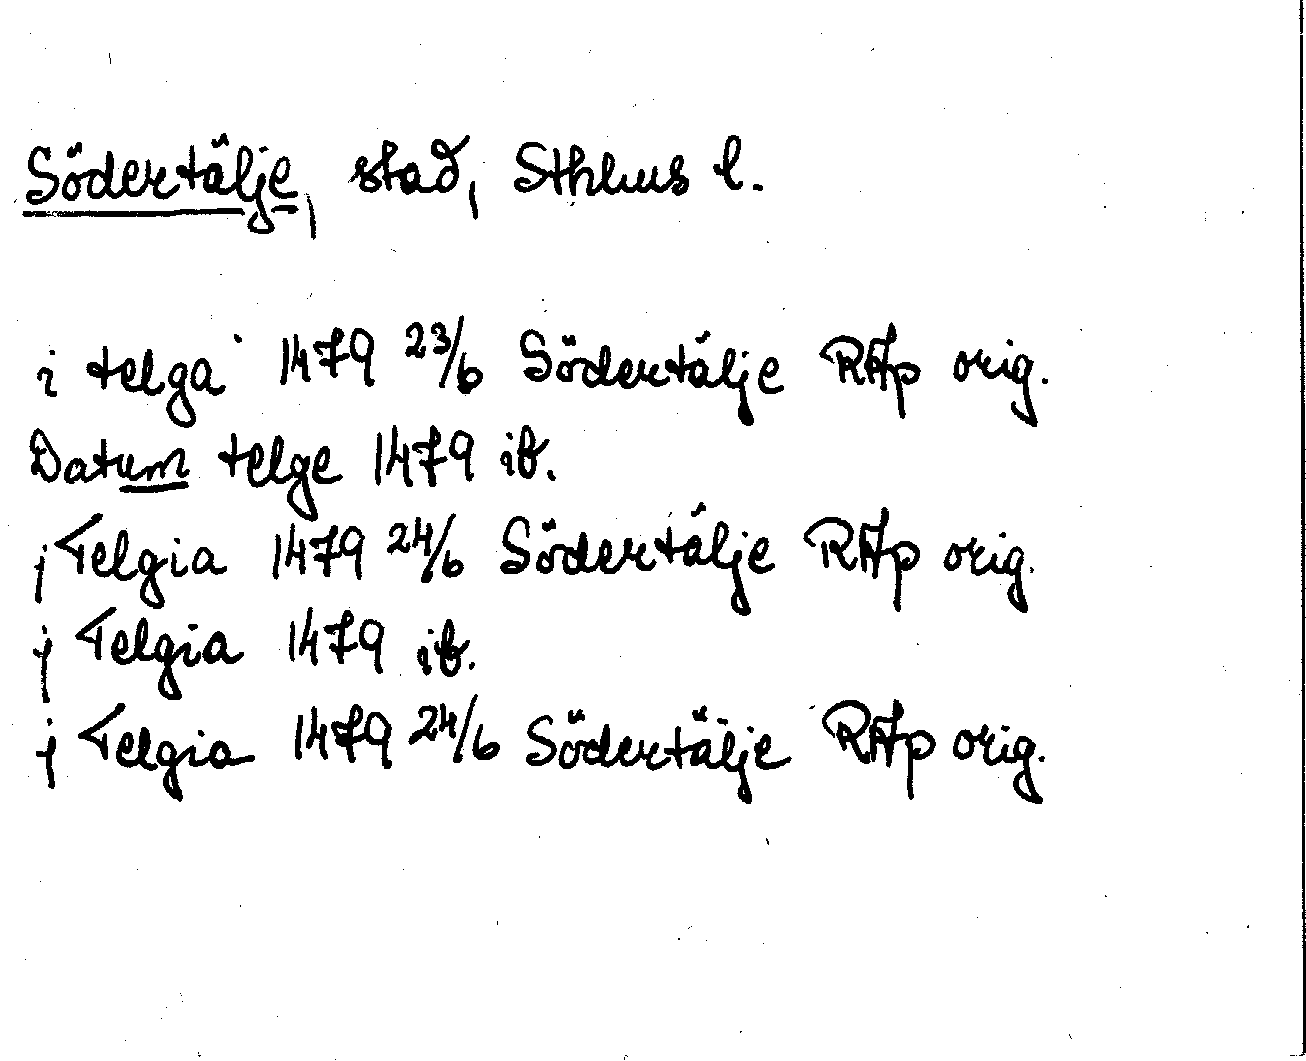 Södertälje, stad, Sthlms l.
i telga 1479 23/6 Södertälje RAp orig.
Datum telge 1479 ib.
j Telgia 1479 24/6 Södertälje RAp orig.
j Telgia 1479 ib.
j Telgia 1479 24/6 Södertälje RAp orig.